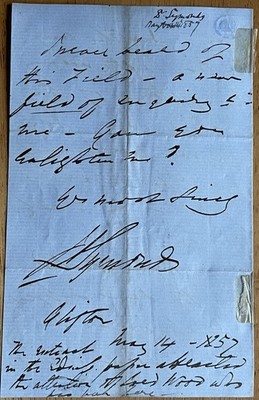 Dr Symonds
May 1857
heard of
this Field - a new
field of enquiry to
me - Can you
enlighten me?
Yrs most sincy
J A Symonds
Clifton
May 14 - 1857
The extract
in the paper attracted
the attention of Lord